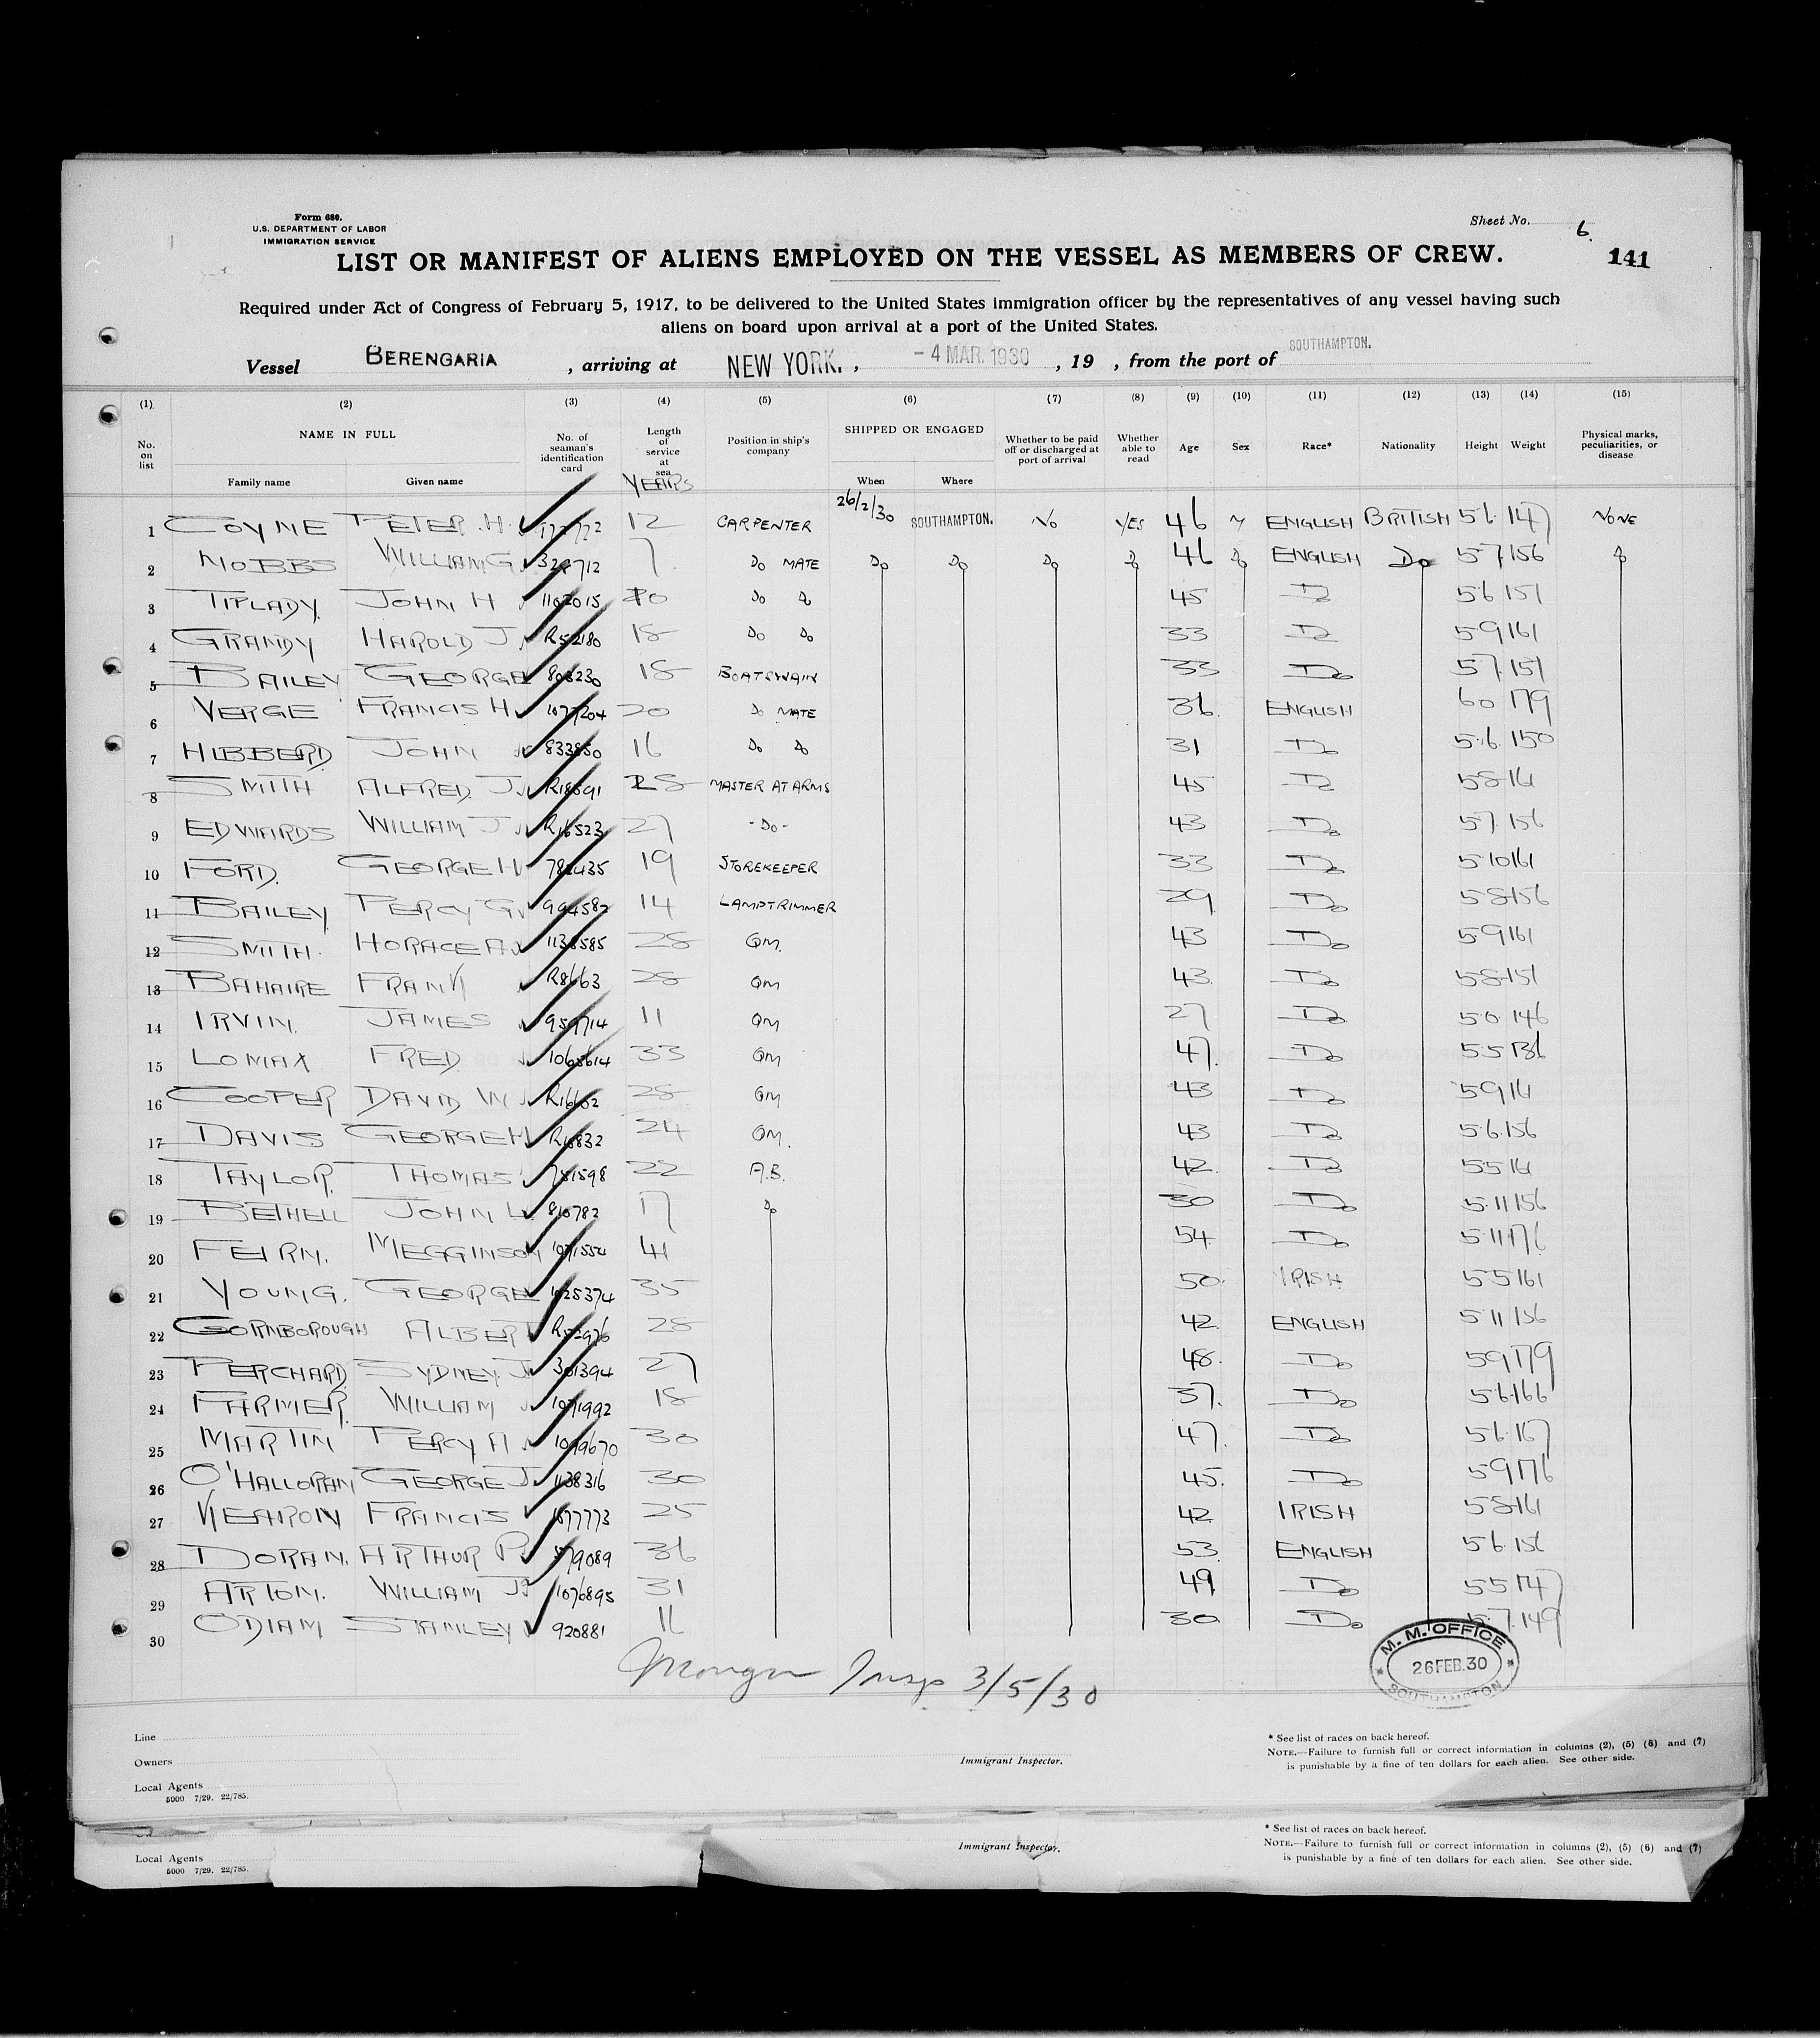 Form 680.
U.S. DEPARTMENT OF LABOR
IMMIGRATION SERVICE
Sheet No. 6.
LIST OR MANIFEST OF ALIENS EMPLOYED ON THE VESSEL AS MEMBERS OF CREW.
141
Required under Act of Congress of February 5, 1917, to be delivered to the United States immigration officer by the representatives of any vessel having such
aliens on board upon arrival at a port of the United States.
Vessel BERENGARIA, arriving at NEW YORK., -4 MAR. 1930, 19 , from the port of SOUTHAMPTON.
(1) (2) (3) (4) (5) (6) (7) (8) (9) (10) (11) (12) (13) (14) (15)
No. on list NAME IN FULL Family name Given name No. of seaman's identification card Length of service at sea YEARS Position in ship's company SHIPPED OR ENGAGED When Where Whether to be paid off or discharged at port of arrival Whether able to read Age Sex Race* Nationality Height Weight Physical marks, peculiarities, or disease
1 COYNE PETER.H. 12 CARPENTER 26/2/30 SOUTHAMPTON. NO YES 46 M ENGLISH BRITISH 5.6. 147 NONE
2 MOBBS WILLIAM G 7 Do MATE Do Do Do Do 46 Do ENGLISH Do 5.7. 156 Do
3 TIPLADY. JOHN H 1102015 Do Do 45 Do 5.6 151
4 GRANDY HAROLD J R52180 18 Do Do 33 Do 5.9 161
5 BAILEY GEORGE 803230 18 BOATSWAIN 33 Do 5.7. 151
6 VERGE FRANCIS H. 1077204 20 Do MATE 36. ENGLISH 6.0 179
7 HIBBERD JOHN 833850 16 Do Do 31 Do 5.6. 150
8 SMITH ALFRED. J. 28 MASTER AT ARMS 45 Do 5.8 161
9 EDWARDS WILLIAM J R16523 27 -Do- 43 Do 5.7. 156
10 FORD. GEORGE H 782435 19 STOREKEEPER 33 Do 5.10 161
11 BAILEY PERCY G 994582 14 LAMPTRIMMER 29 Do 5.8 156
12 SMITH. HORACE A 1138585 28 QM. 43 Do 5.9 161
13 BAHAIRE FRANK R8663 28 QM 43. Do 5.8 151
14 IRVIN. JAMES 959714 11 QM 27 Do 5.0. 146
15 LOMAX FRED 1065614 33 QM 47. Do 5.5 136
16 COOPER DAVID W R16602 28 QM 43 Do 5.9 161
17 DAVIS GEORGE H 24 QM. 43 Do 5.6. 156
18 TAYLOR. THOMAS 781598 22 A.B. 42. Do 5.5 161
19 BETHELL JOHN L. 810782 17 Do 30 Do 5.11 156
20 FEIRN. MEGGINSON 41 54. Do 5.11 176
21 YOUNG. GEORGE 1025374 35 50. IRISH 5.5 161
22 GORNBOROUGH ALBERT 28 42. ENGLISH 5.11 156
23 PERCHARD. SYDNEY. J 301394 27 48. Do 5.9 179
24 FARMER. WILLIAM 1071992 18 37. Do 5.6. 166
25 MARTIN PERCY A 1099670 30 47. Do 5.6. 167
26 O'HALLORAN GEORGE J 1138316 30 45. Do 5.9 176
27 KEARON FRANCIS 1077773 25 42 IRISH 5.8 161
28 DORAN. ARTHUR P. 579089 36 53. ENGLISH 5.6. 156
29 ARTON. WILLIAM J 1076895 31 49 Do 5.5 147
30 ODIAM STANLEY 920881 30. Do 5.7. 149
Insp 3/5/30
M. M. OFFICE
26 FEB. 30
SOUTHAMPTON
Line
Owners
Local Agents
5000 7/29. 22/785.
Immigrant Inspector.
* See list of races on back hereof.
NOTE.—Failure to furnish full or correct information in columns (2), (5) (6) and (7)
is punishable by a fine of ten dollars for each alien. See other side.
Local Agents
5000 7/29. 22/785.
Immigrant Inspector.
* See list of races on back hereof.
NOTE.—Failure to furnish full or correct information in columns (2), (5) (6) and (7)
is punishable by a fine of ten dollars for each alien. See other side.